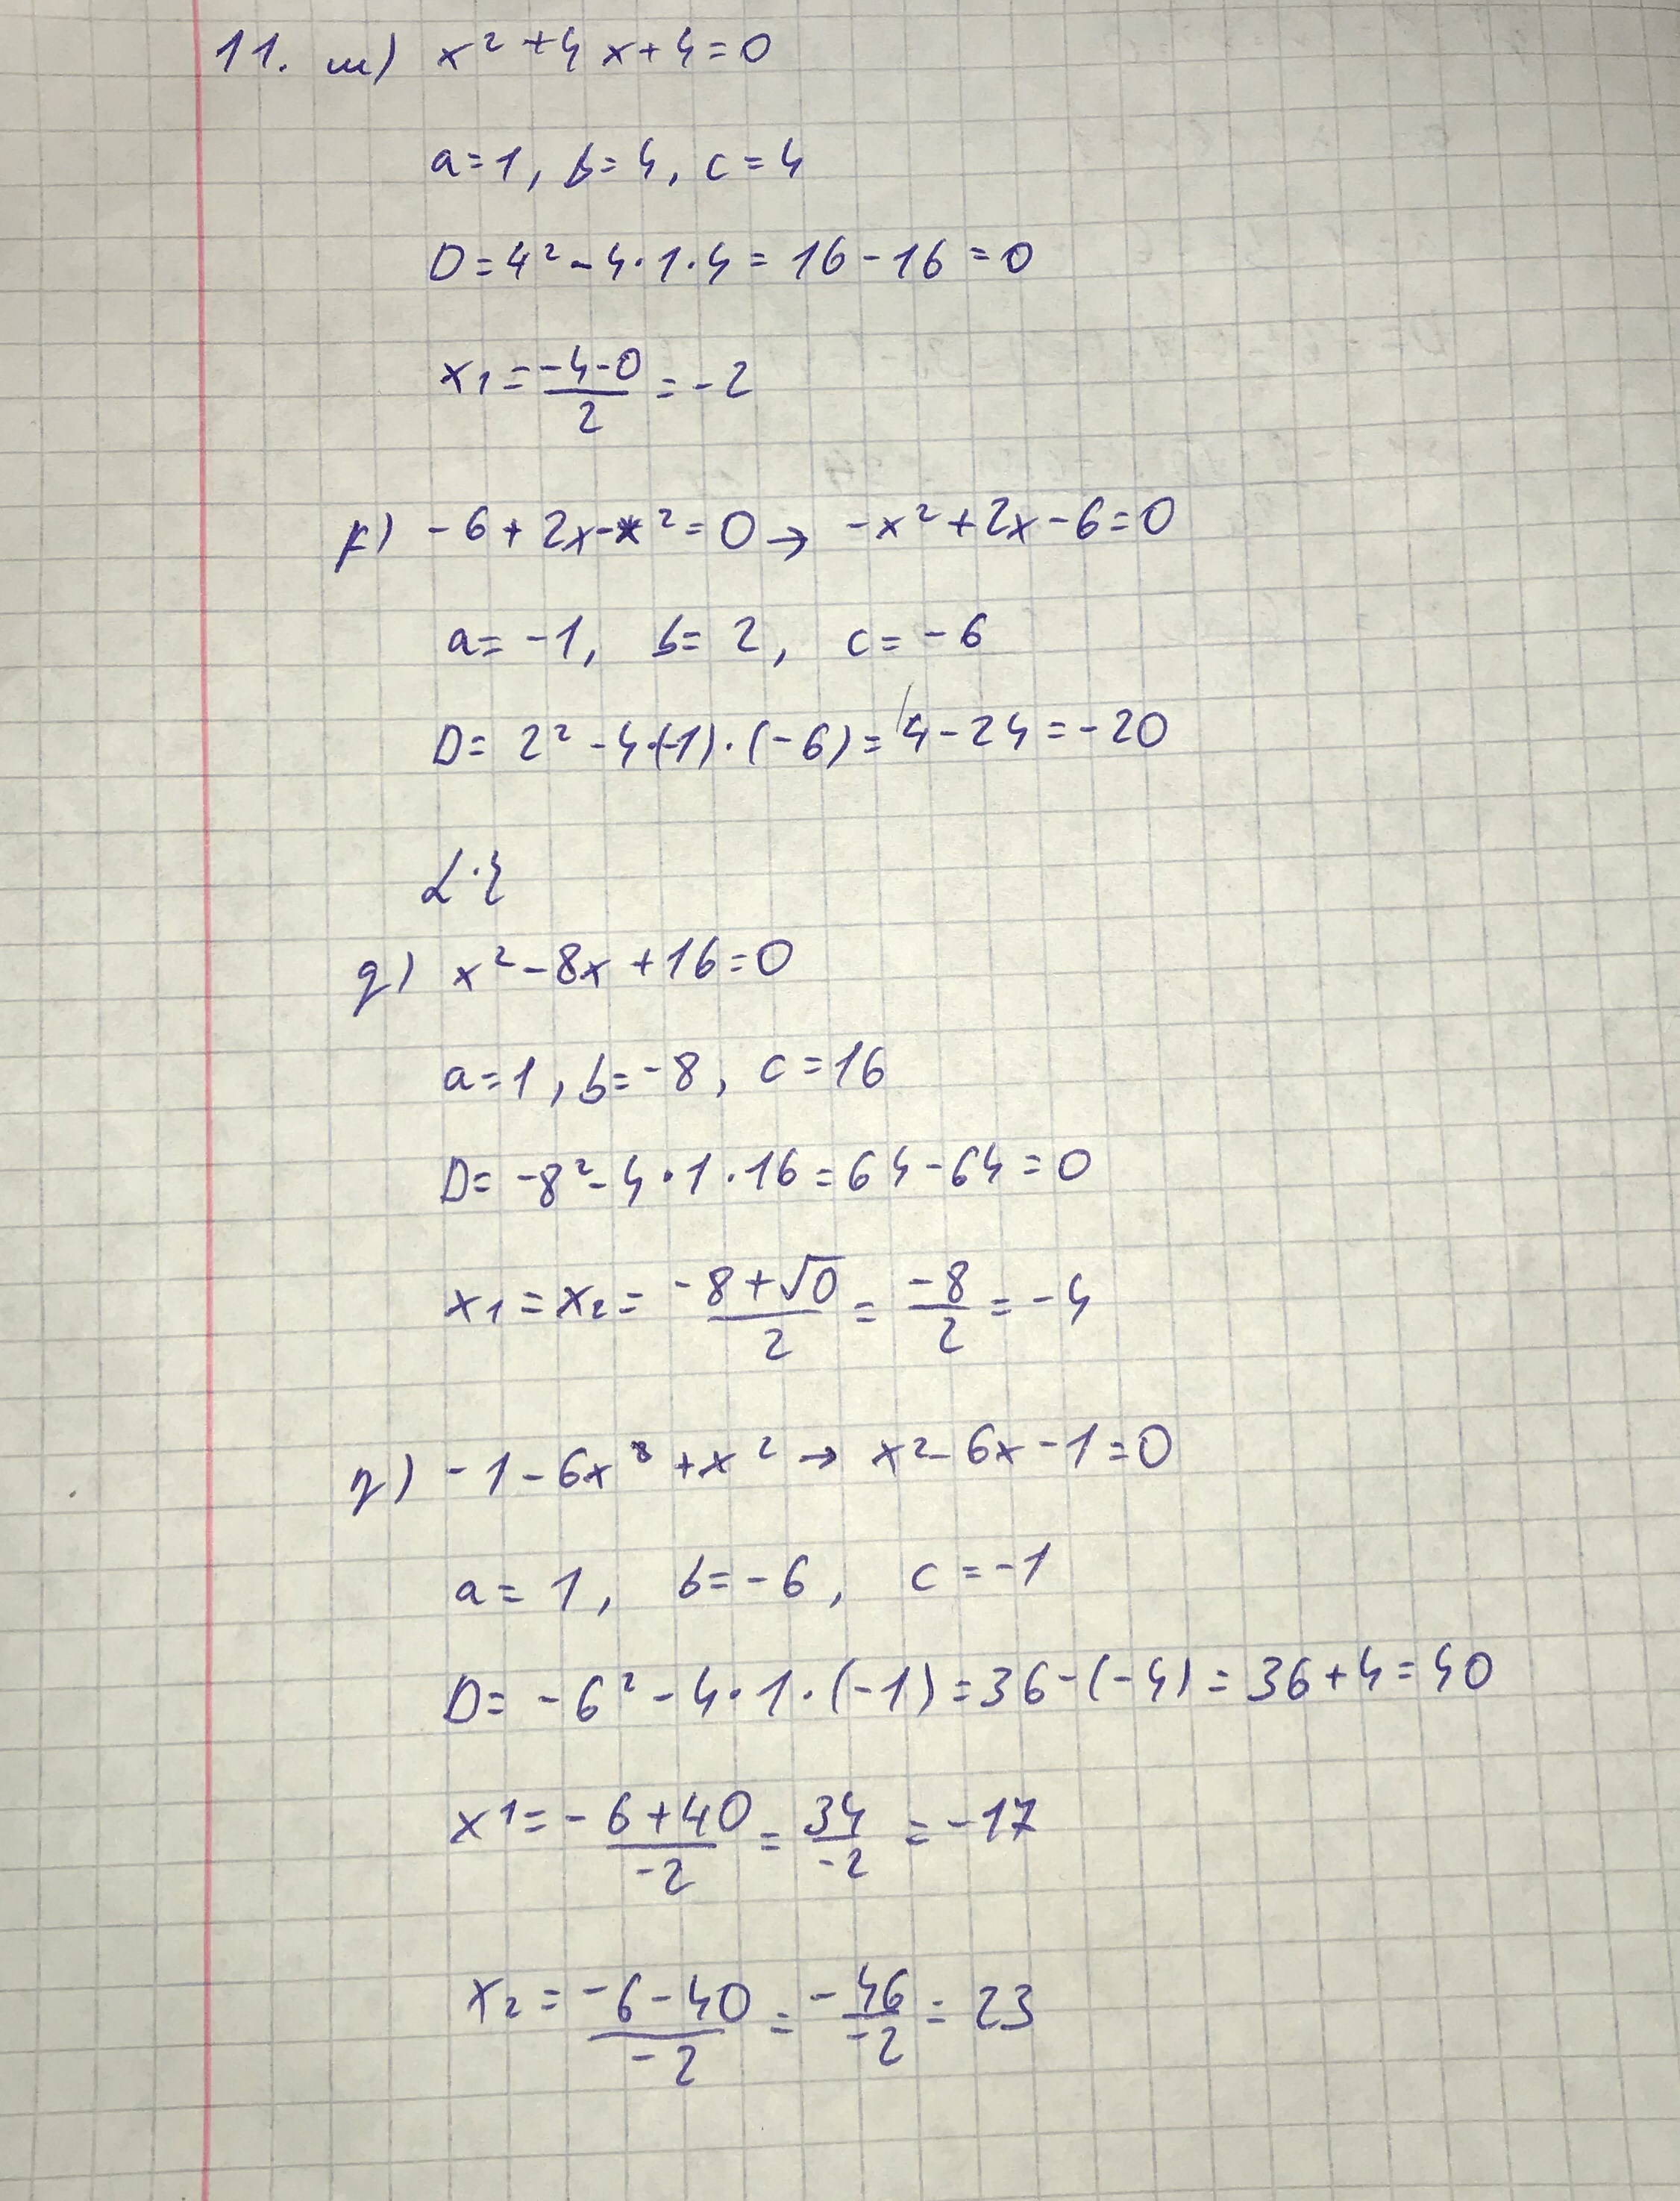 11. m) x² + 4x + 4 = 0
a = 1, b = 4, c = 4
D = 4² - 4·1·4 = 16 - 16 = 0
x₁ = (-4-0)/2 = -2
p) -6 + 2x - x² = 0 → -x² + 2x - 6 = 0
a = -1, b = 2, c = -6
D = 2² - 4·(-1)·(-6) = 4 - 24 = -20
q) x² - 8x + 16 = 0
a = 1, b = -8, c = 16
D = -8² - 4·1·16 = 64 - 64 = 0
x₁ = x₂ = (-8+√0)/2 = -8/2 = -4
η) -1 - 6x + x² → x² - 6x - 1 = 0
a = 1, b = -6, c = -1
D = -6² - 4·1·(-1) = 36 - (-4) = 36 + 4 = 40
x1 = (-6+40)/-2 = 34/-2 = -17
x₂ = (-6-40)/-2 = -46/-2 = 23